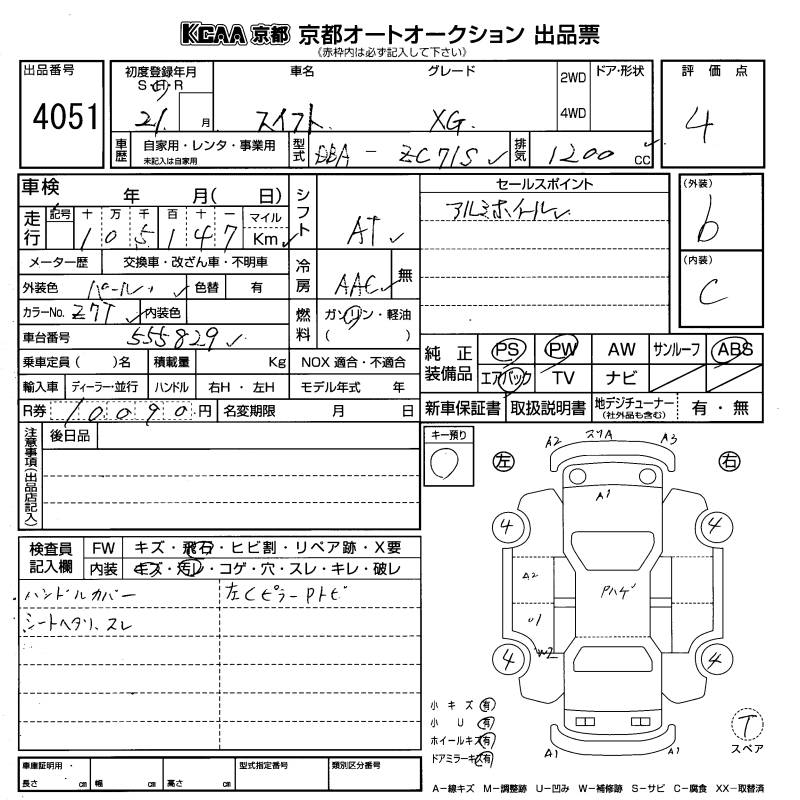 KCAA 京都 京都オートオークション 出品票
(赤枠内は必ず記入して下さい)
出品番号 初度登録年月 車名 グレード 2WD ドア・形状 評価点
S・H・R
4051 21 月 スイフト XG 4WD 4
車歴 自家用・レンタ・事業用 型式 DBA - ZC71S 排気 1200 cc
未記入は自家用
車検 年 月( 日) シフト AT セールスポイント (外装)
走行 記号 十 万 千 百 十 一 マイル アルミホイール b
105147 Km
メーター歴 交換車・改ざん車・不明車 冷房 AAC 無 (内装)
外装色 パール 色替 有 C
カラーNo. Z7T 内装色 燃料 ガソリン・軽油
車台番号 555829 ( )
乗車定員( )名 積載量 Kg NOX 適合・不適合 純正装備品 PS PW AW サンルーフ ABS
輸入車 ディーラー・並行 ハンドル 右H・左H モデル年式 年 エアバック TV ナビ
R券 10090円 名変期限 月 日 新車保証書 取扱説明書 地デジチューナー (社外品も含む) 有・無
注意事項(出品店記入) 後日品 キー預り
A2 スリA A3
左 右
A1
4 4
検査員記入欄 FW キズ・飛石・ヒビ割・リペア跡・X要
内装 キズ・汚レ・コゲ・穴・スレ・キレ・破レ
ハンドルカバー 左Cピラー Pトビ
A2 Pハゲ
シートヘタリ、スレ
U1
W2
4 4
小キズ 有
小U 有
ホイールキズ 有
ドアミラーキズ 有
T
スペア
A1 A1
車庫証明用・ 型式指定番号 類別区分番号
長さ cm 幅 cm 高さ cm
A−線キズ M−調整跡 U−凹み W−補修跡 S−サビ C−腐食 XX−取替済